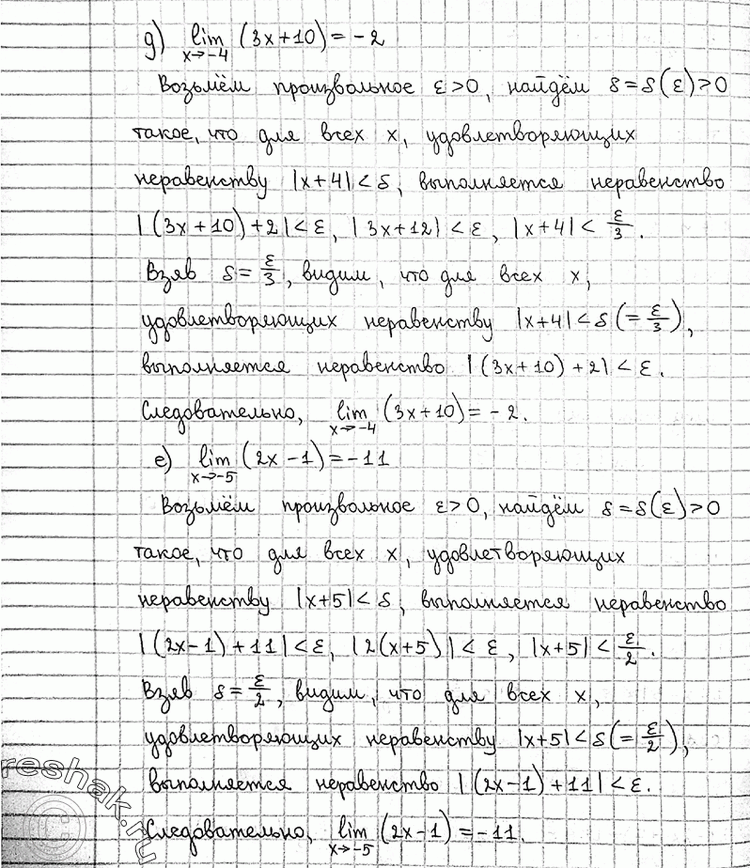 д) lim x→-4 (3x+10) = -2
Возьмём произвольное ε>0, найдём δ=δ(ε)>0
такое, что для всех x, удовлетворяющих
неравенству |x+4|<δ, выполняется неравенство
|(3x+10)+2|<ε, |3x+12|<ε, |x+4|< ε/3.
Взяв δ=ε/3, видим, что для всех x,
удовлетворяющих неравенству |x+4|<δ(=ε/3),
выполняется неравенство |(3x+10)+2|<ε.
Следовательно, lim x→-4 (3x+10) = -2.
е) lim x→-5 (2x-1) = -11
Возьмём произвольное ε>0, найдём δ=δ(ε)>0
такое, что для всех x, удовлетворяющих
неравенству |x+5|<δ, выполняется неравенство
|(2x-1)+11|<ε, |2(x+5)|<ε, |x+5|<ε/2.
Взяв δ=ε/2, видим, что для всех x,
удовлетворяющих неравенству |x+5|<δ(=ε/2),
выполняется неравенство |(2x-1)+11|<ε.
Следовательно, lim x→-5 (2x-1) = -11.
reshak.ru
©